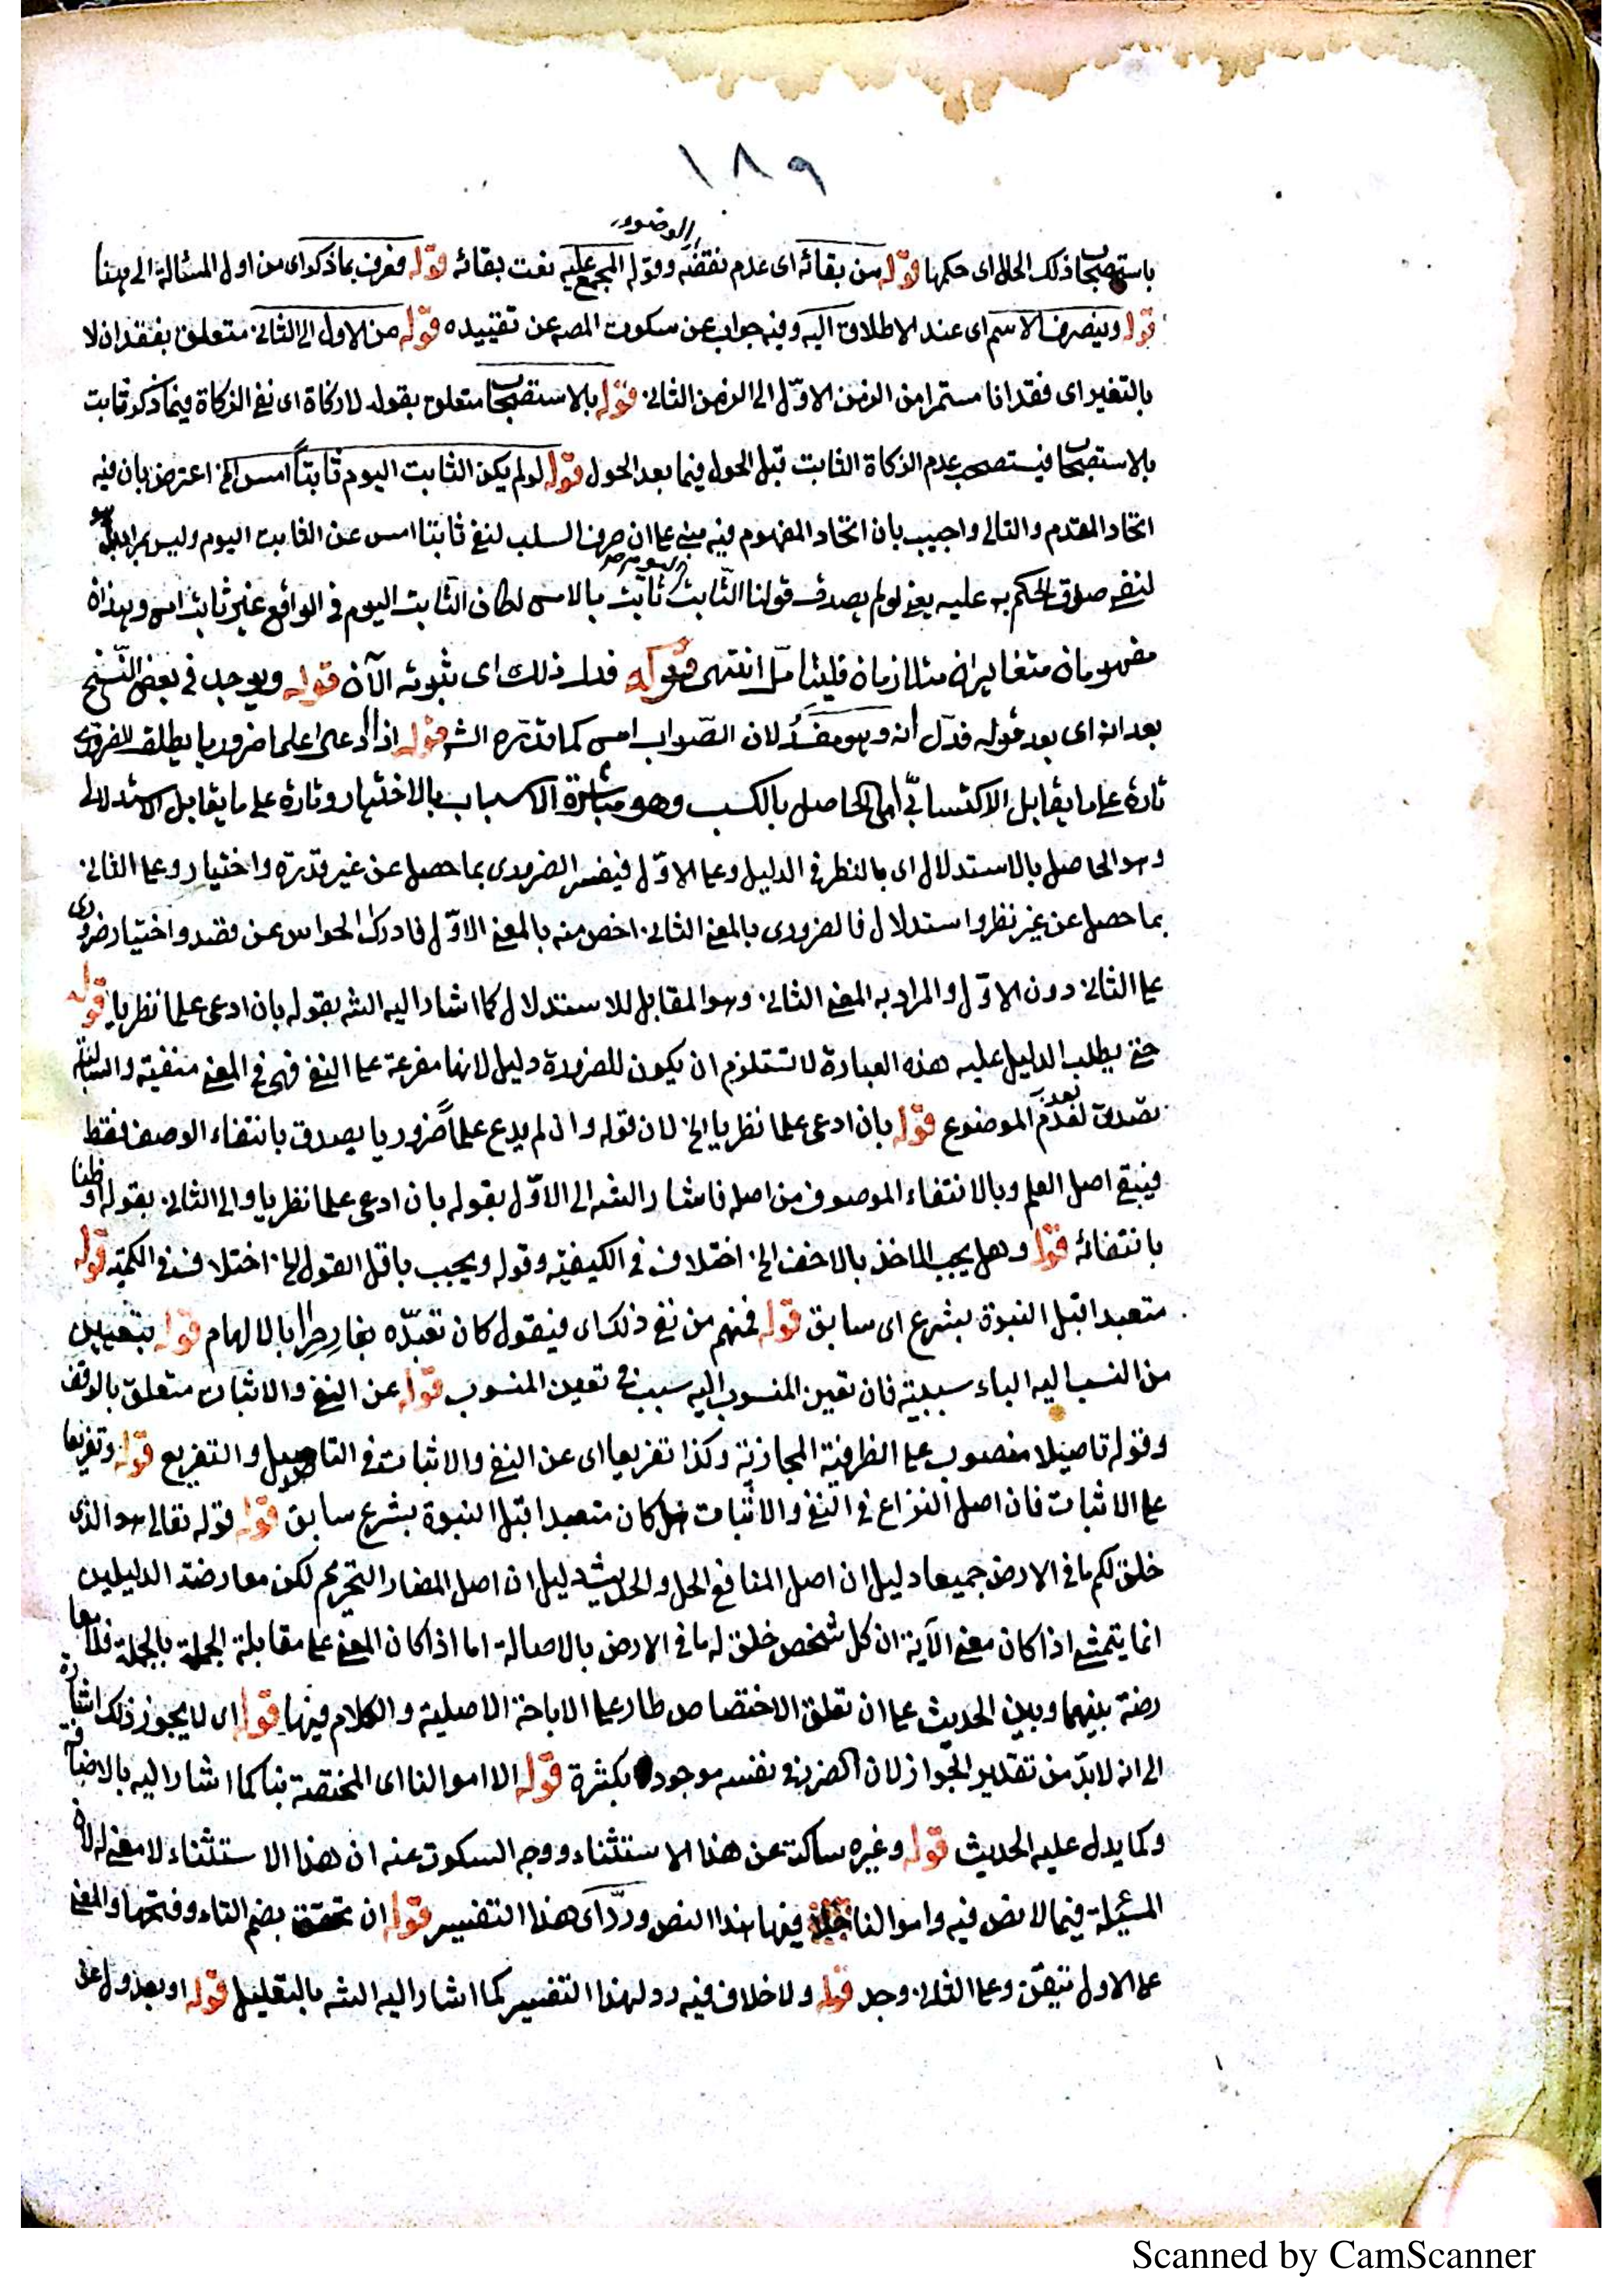 ١٨٩
الوضوء
باستصحاب ذلك الحال اى حكمها قوله من بقائه اى عدم نقضه وقوله المجمع عليه نعت بقائه قوله فعرف بما ذكر اى من اول المسئالة الى هنا
قوله وينصرف الاسم اى عند الاطلاق اليه وفيه جواب عن سكوت المصـ عن تقييده قوله من الاول الى الثانى متعلق بفقدان لا
بالتغير اى فقدانا مستمرا من الزمن الاوّل الى الزمن الثانى قوله بالاستصحاب متعلق بقوله لا زكاة اى نفى الزكاة فيما ذكر ثابت
بالاستصحاب فيستصحب عدم الزكاة الثابت قبل الحول فيما بعد الحول قوله لو لم يكن الثابت اليوم ثابتاً امس الخ اعترض بان فيه
اتحاد المقدم والتالى واجيب بان اتحاد المفهوم فيه مبنى على ان حرف السلب لنفى ثابتا امس عن الثابت اليوم وليس بمراد بل هو
لنفى صدق الحكم به عليه يعنى لو لم يصدق قولنا الثابت ثابت بالامس لكان الثابت اليوم فى الواقع غير ثابت امس وهذان
مفهومان متغايران متلازمان فليتامّل انتهى قوله فدل ذلك اى ثبوته الآن قوله ويوجد فى بعض النّسخ
بعد انه اى بعد قوله فدلّ انه وهو مفسدٌ لان الصّواب امس كما قدّره الشـ قوله اذا ادعى علما ضروريا يطلق الضرورى
تارة على ما يقابل الاكتسابىّ اى الحاصل بالكسب وهو مباشرة الاسباب بالاختيار وتارة على ما يقابل الاستدلالى
وهو الحاصل بالاستدلال اى بالنظر فى الدليل وعلى الاوّل فيفسر الضرورى بما حصل عن غير قدرة واختيار وعلى الثانى
بما حصل عن غير نظر واستدلال فالضرورى بالمعنى الثانى اخص منه بالمعنى الاوّل فادراك الحواس عن قصد واختيار ضرورى
على الثانى دون الاوّل والمراد به المعنى الثانى وهو المقابل للاستدلال كما اشار اليه الشـ بقوله بان ادعى علما نظريا قوله
حتى يطلب الدليل عليه هذه العبارة لا تستلزم ان يكون للضرورة دليل لانها مفرعة على النفى فهى فى المعنى منفية والسالبة
تصدق لعدم الموضوع قوله بان ادعى علما نظريا الخ لان قوله وان لم يدع علماً ضروريا يصدق بانتفاء الوصف فقط
فيبقى اصل العلم وبالانتفاء الموصوف من اصله فاشار الشـ الى الاوّل بقوله بان ادعى علما نظريا والى الثانى بقوله او ظنا
بانتفائه قوله وهل يجب الاخذ بالاخف الخ اختلاف فى الكيفية وقوله ويجب باقل المقول الخ اختلاف فى الكمية قوله
متعبدا قبل النبوة بشرع اى سابق قوله فمنهم من نفى ذلك اى فيقول كان تعبّده بغارِ حِرا بالالهام قوله بتعيين
من النسب اليه الباء سببية فان تعين المنسوب اليه سبب فى تعين المنسوب قوله عن النفى والاثبات متعلق بالوقف
وقوله تاصيلا منصوب على الظرفية المجازية وكذا تفريعا اى عن النفى والاثبات فى التاصيل والتفريع قوله وتفريعا
على الاثبات فان اصل النزاع فى النفى والاثبات هل كان متعبدا قبل النبوة بشرع سابق قوله قوله تعالى هو الذى
خلق لكم ما فى الارض جميعا دليل ان اصل المنافع الحل والحديث دليل ان اصل المضار التحريم لكن معارضة الدليلين
انما يتمشى اذا كان معنى الآية ان كل شخص خلق له ما فى الارض بالاصالة اما اذا كان المعنى على مقابلة الجملة بالجملة فلا معا
رضة بينهما وبين الحديث على ان تعلق الاختصاص طار على الاباحة الاصلية والكلام فيها قوله اى لا يجوز ذلك اشارة
الى انه لا بدّ من تقدير الجواز لان الضرر فى نفسه موجود بكثرة قوله الا اموالنا اى المختصة بنا كما اشار اليه بالاضافة
وكما يدل عليه الحديث قوله وغيره ساكت عن هذا الاستثناء ووجه السكوت عنه ان هذا الاستثناء لا معنى له لان
المسئلة فيما لا نص فيه واموالنا فيها هذا النص وردّ اى هذا التفسير قوله ان تحقق بضم التاء وفتحها والمعنى
على الاول تيقن وعلى الثانى وجد قوله ولا خلاف فيه رد لهذا التفسير كما اشار اليه الشـ بالتعليل قوله او بعدول عن
Scanned by CamScanner